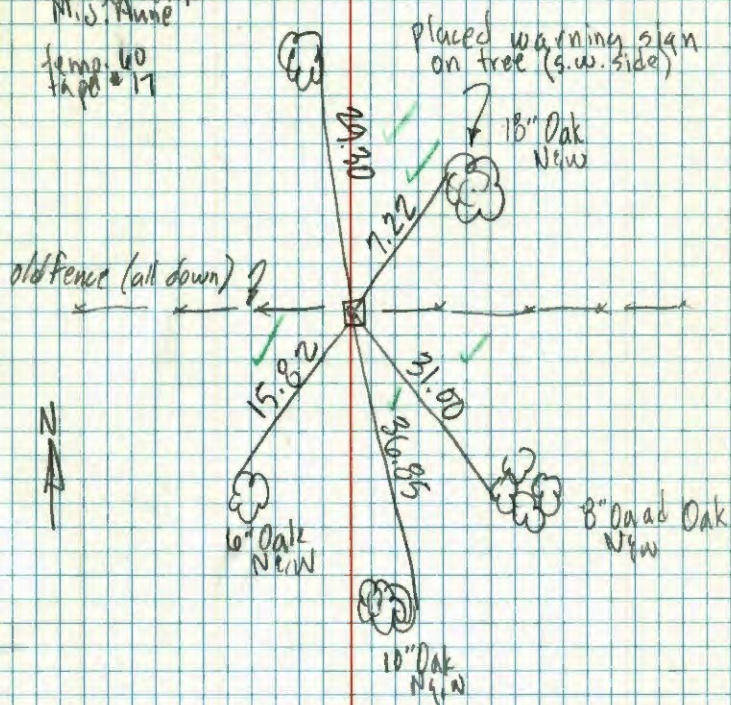 M.J. Anne
temp. 60
tape # 17
placed warning sign
on tree (s.w. side)
18" Oak
N&W
7.22
old fence (all down)
15.82
31.00
36.85
N
6" Oak
N&W
8" Quad Oak
N&W
10" Oak
N&W